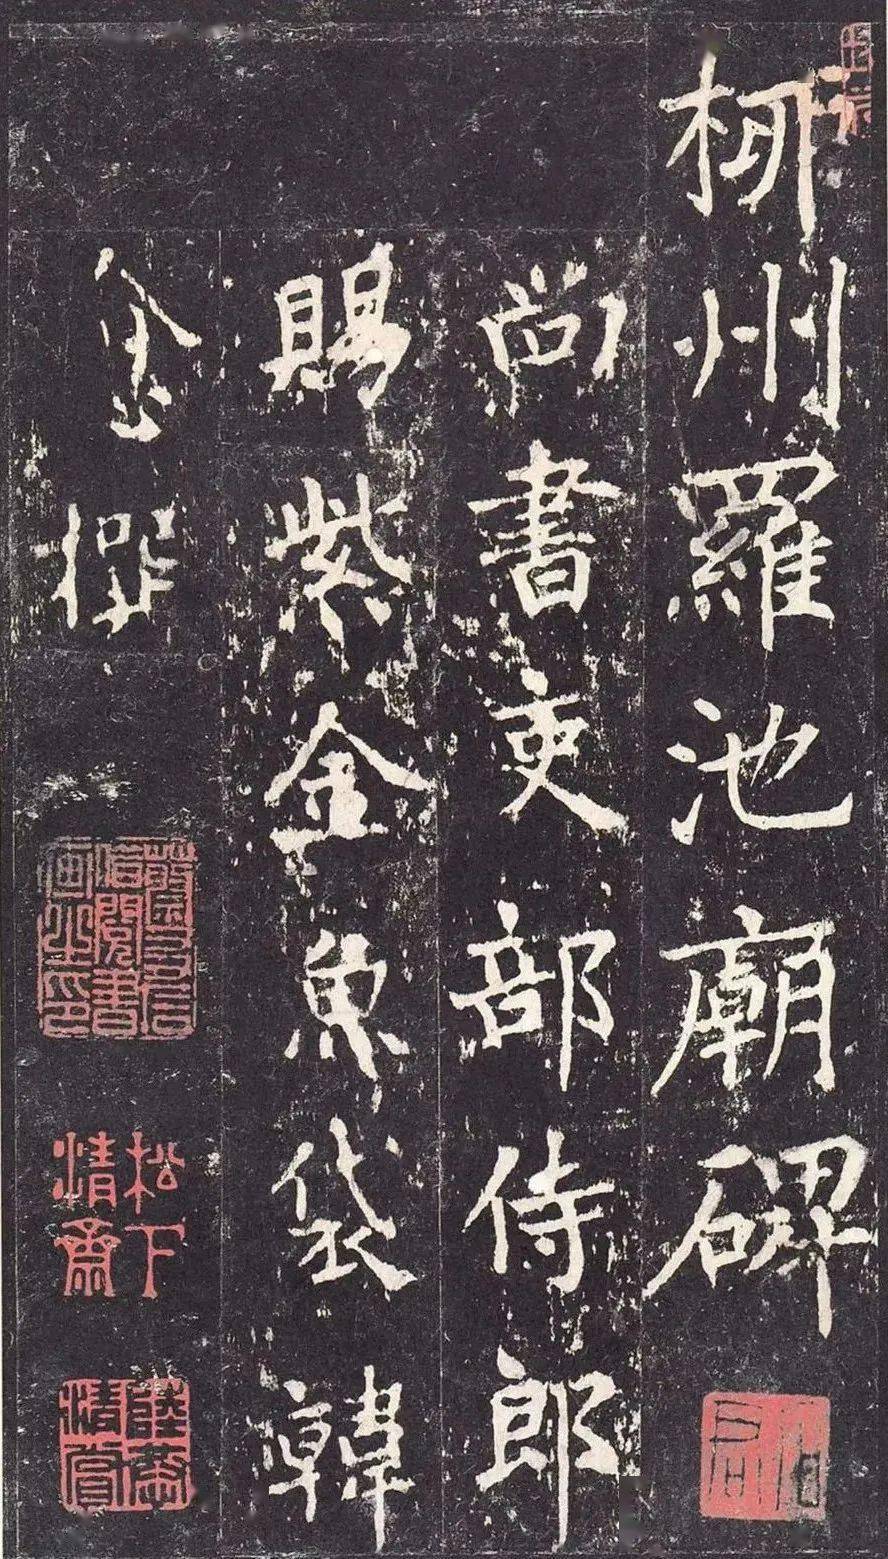 柳州羅池廟碑
尚書吏部侍郎
賜紫金魚袋韓
愈撰
松下清齋
陸恭清賞